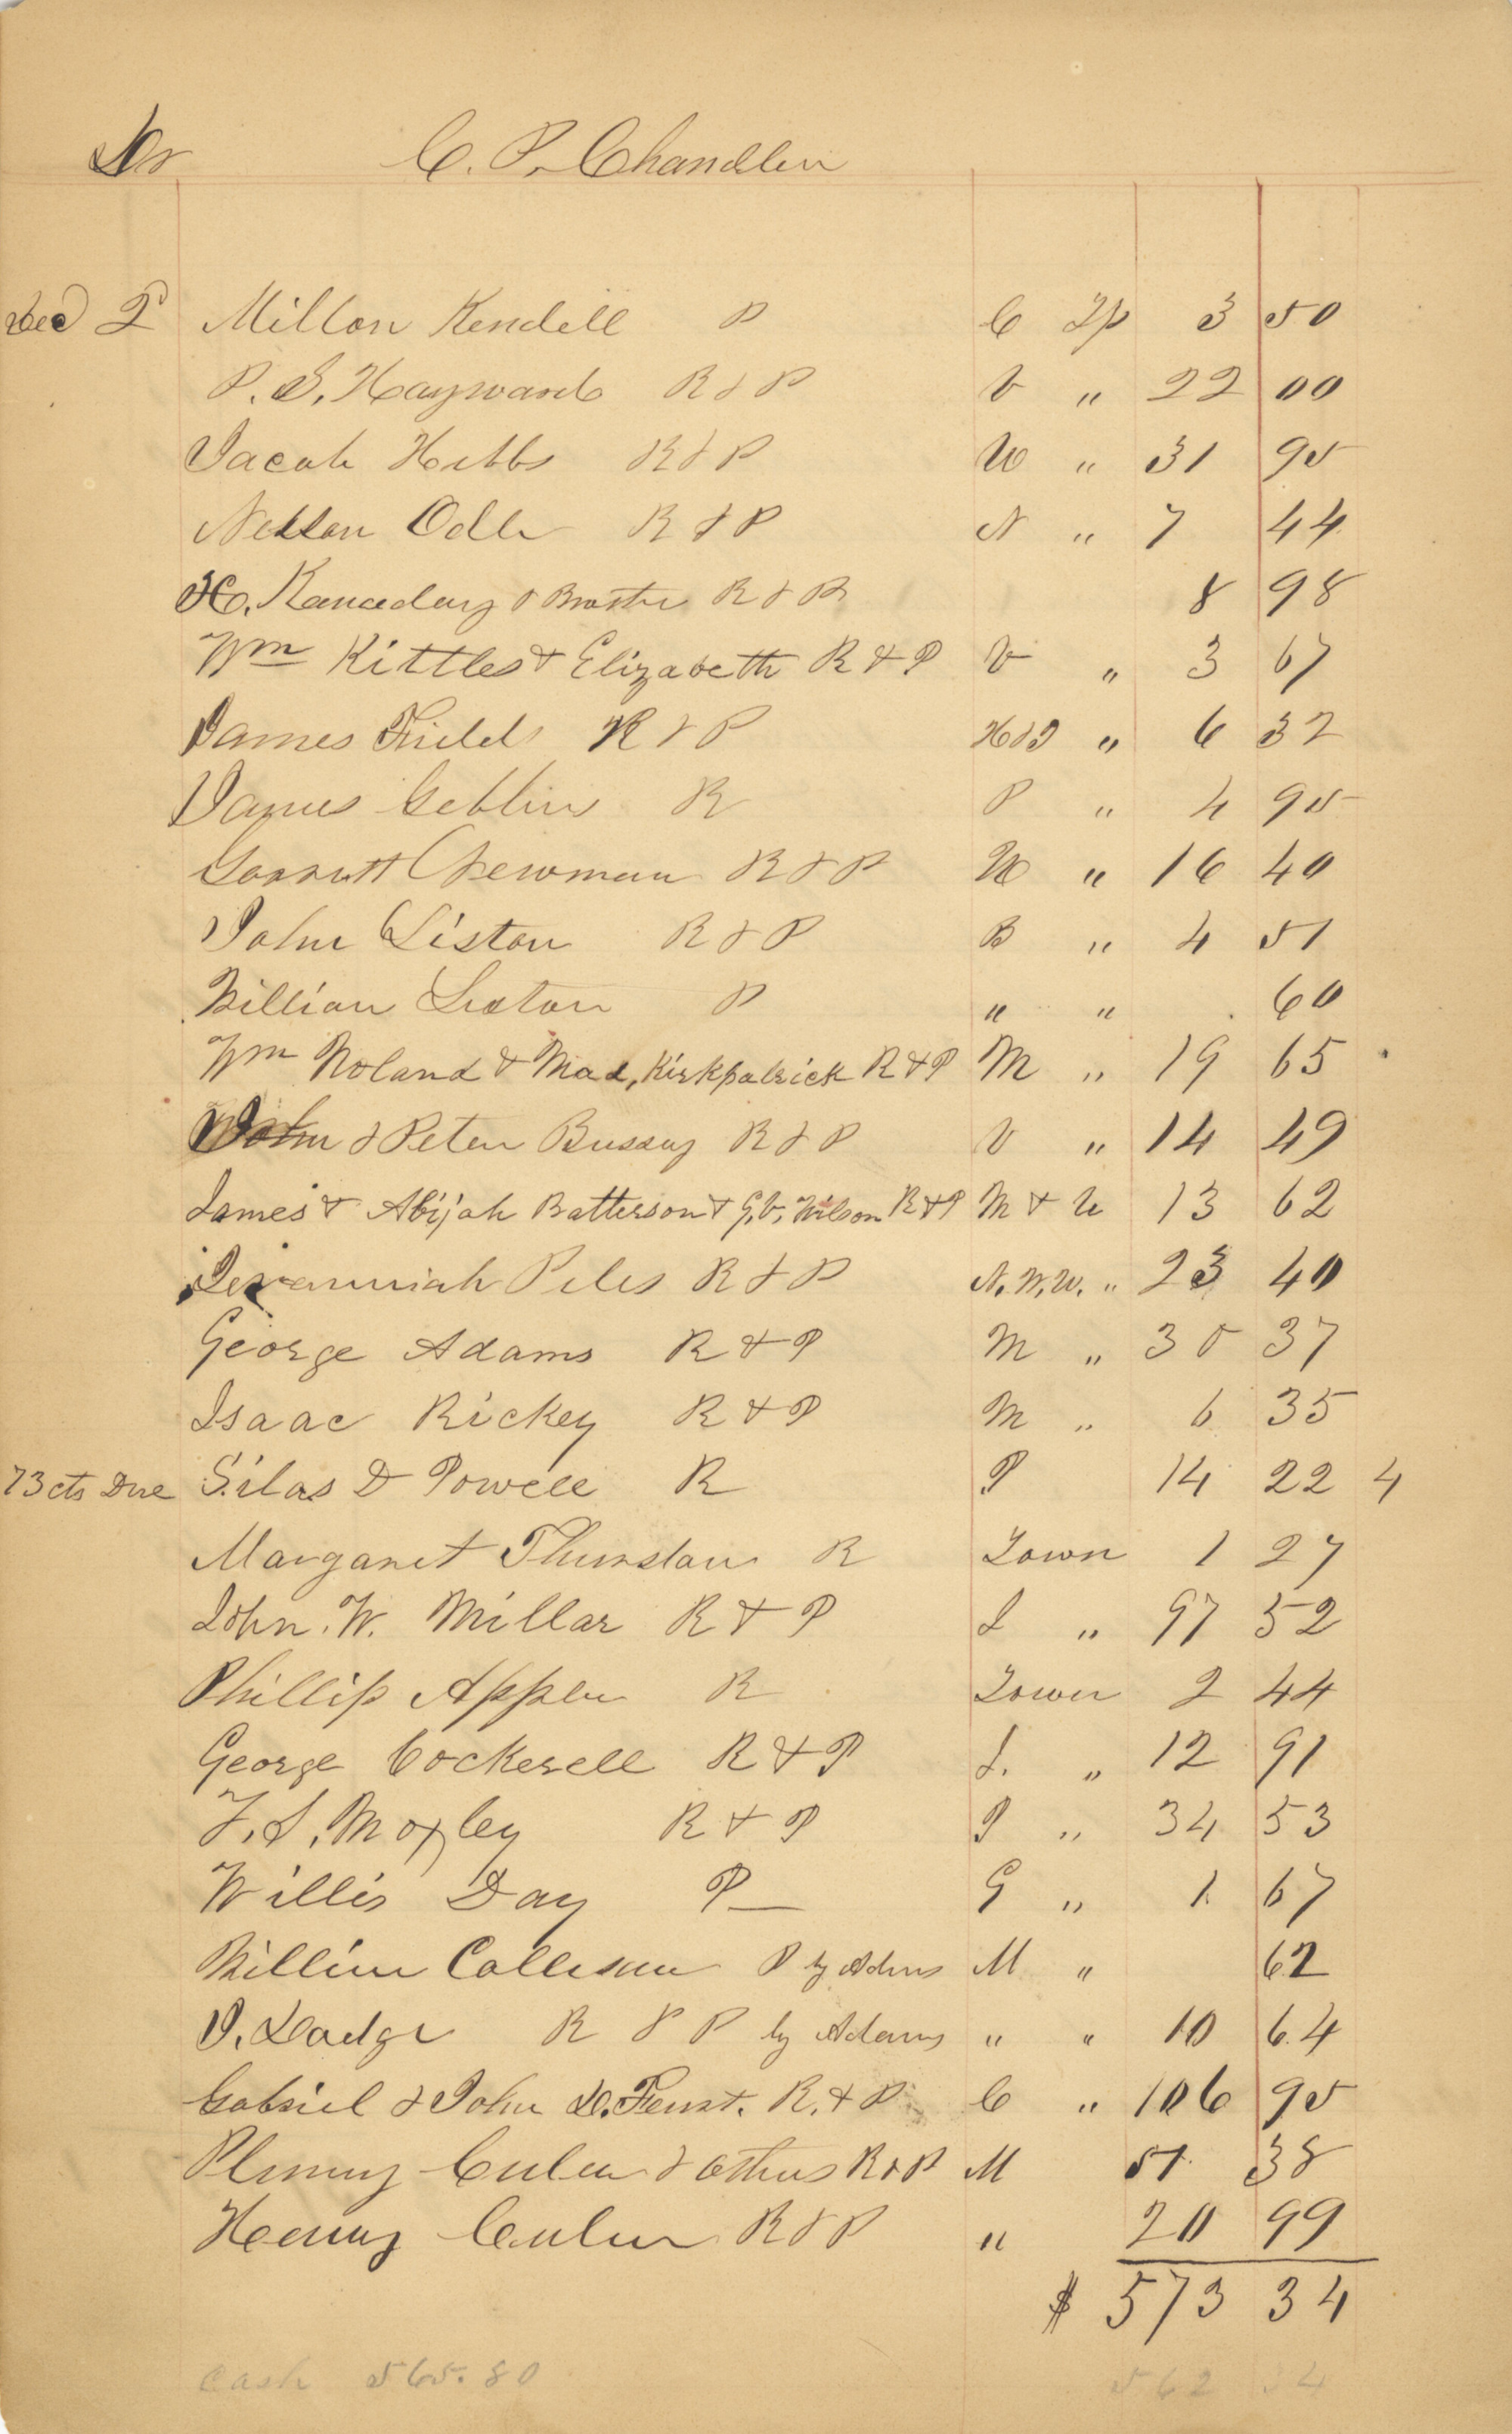 Dr C. P. Chandler
Dec 2 Milton Kendell P C Tp 3 50
P. S. Hayward R & P V " 22 00
Jacob Hibbs R & P W " 31 95
Nelson Odle R & P N " 7 44
H. Kanaday & R & P 8 98
Wm Kittles & Elizabeth R & P V " 3 67
James Fields R & P " 6 32
James R P " 4 95
Garrett Chewman R & P W " 16 40
John Liston R & P B " 4 51
William Liston P " " 60
Wm Noland & Mad, Kirkpatrick R & P M " 19 65
John & Peter Bussay R & P V " 14 49
James & Abijah Batterson & G.V. Wilson R & P M & U 13 62
Jeremiah Piles R & P N.W.W. " 23 40
George Adams R & P M " 30 37
Isaac Rickey R & P M " 6 35
73 cts Due Silas D Powell R P 14 22 4
Margaret Thurston R Town 1 27
John. W. Millar R & P I " 97 52
Phillip Appler R Town 2 44
George Cockerell R & P I. " 12 91
F. S. Moxley R & P P " 34 53
Willis Day P G " 1 67
William Callisan P by Adams M " 62
J. Dodge R & P by Adams " " 10 64
Gabriel & John D. Feust. R. & P C " 106 95
& others R & P M 51 38
Henry R & P " 20 99
$ 573 34
Cash 565.80 562 34